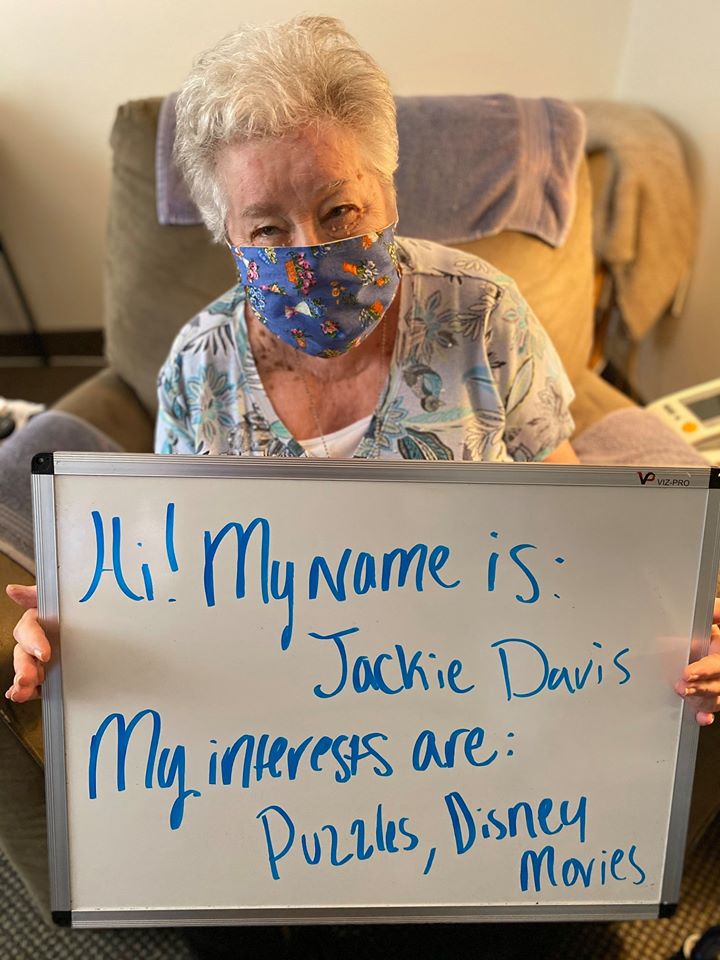 VP VIZ-PRO
Hi! My name is:
Jackie Davis
My interests are:
Puzzles, Disney
Movies